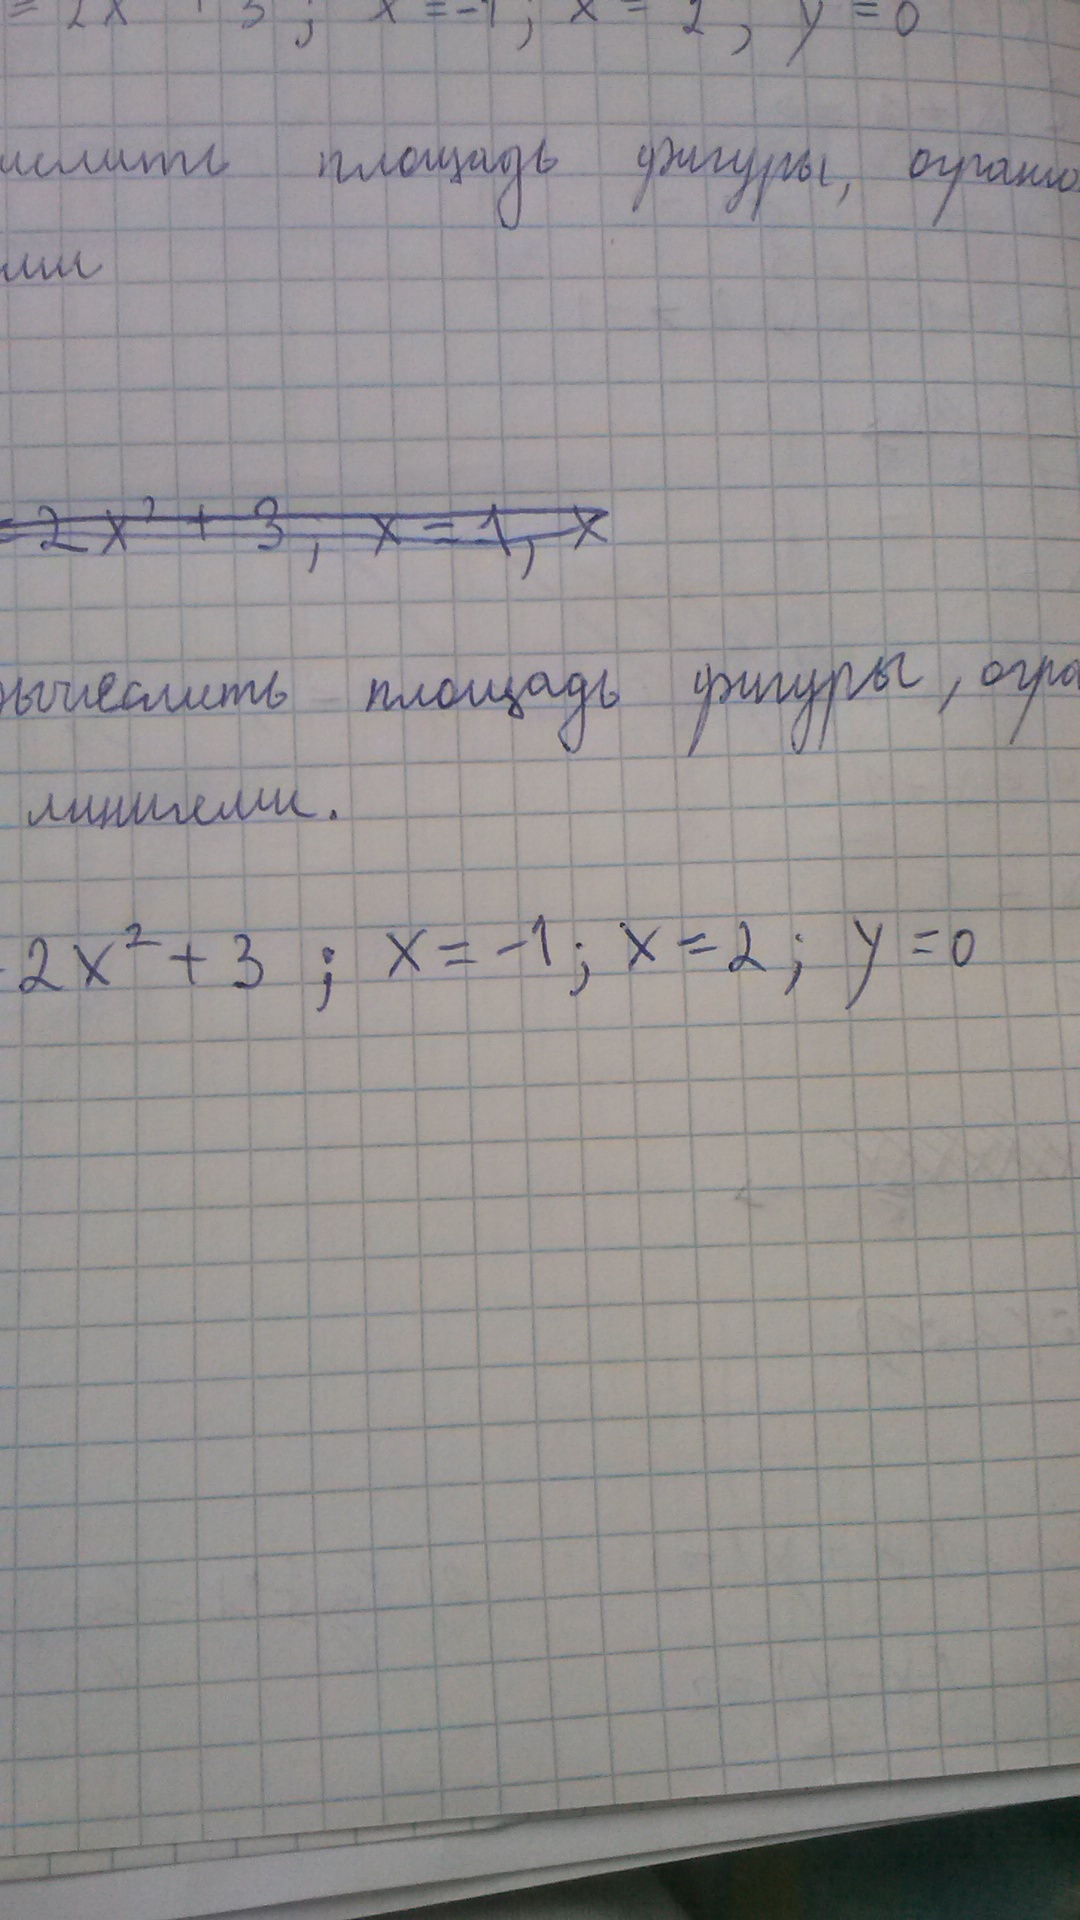 = 2x + 3; x = -1; x = 2, y = 0
ислить площадь фигуры, ограни
ями
= 2x² + 3; x = 1, x
вычеслить площадь фигуры, огра
линиями.
2x² + 3; x = -1; x = 2; y = 0